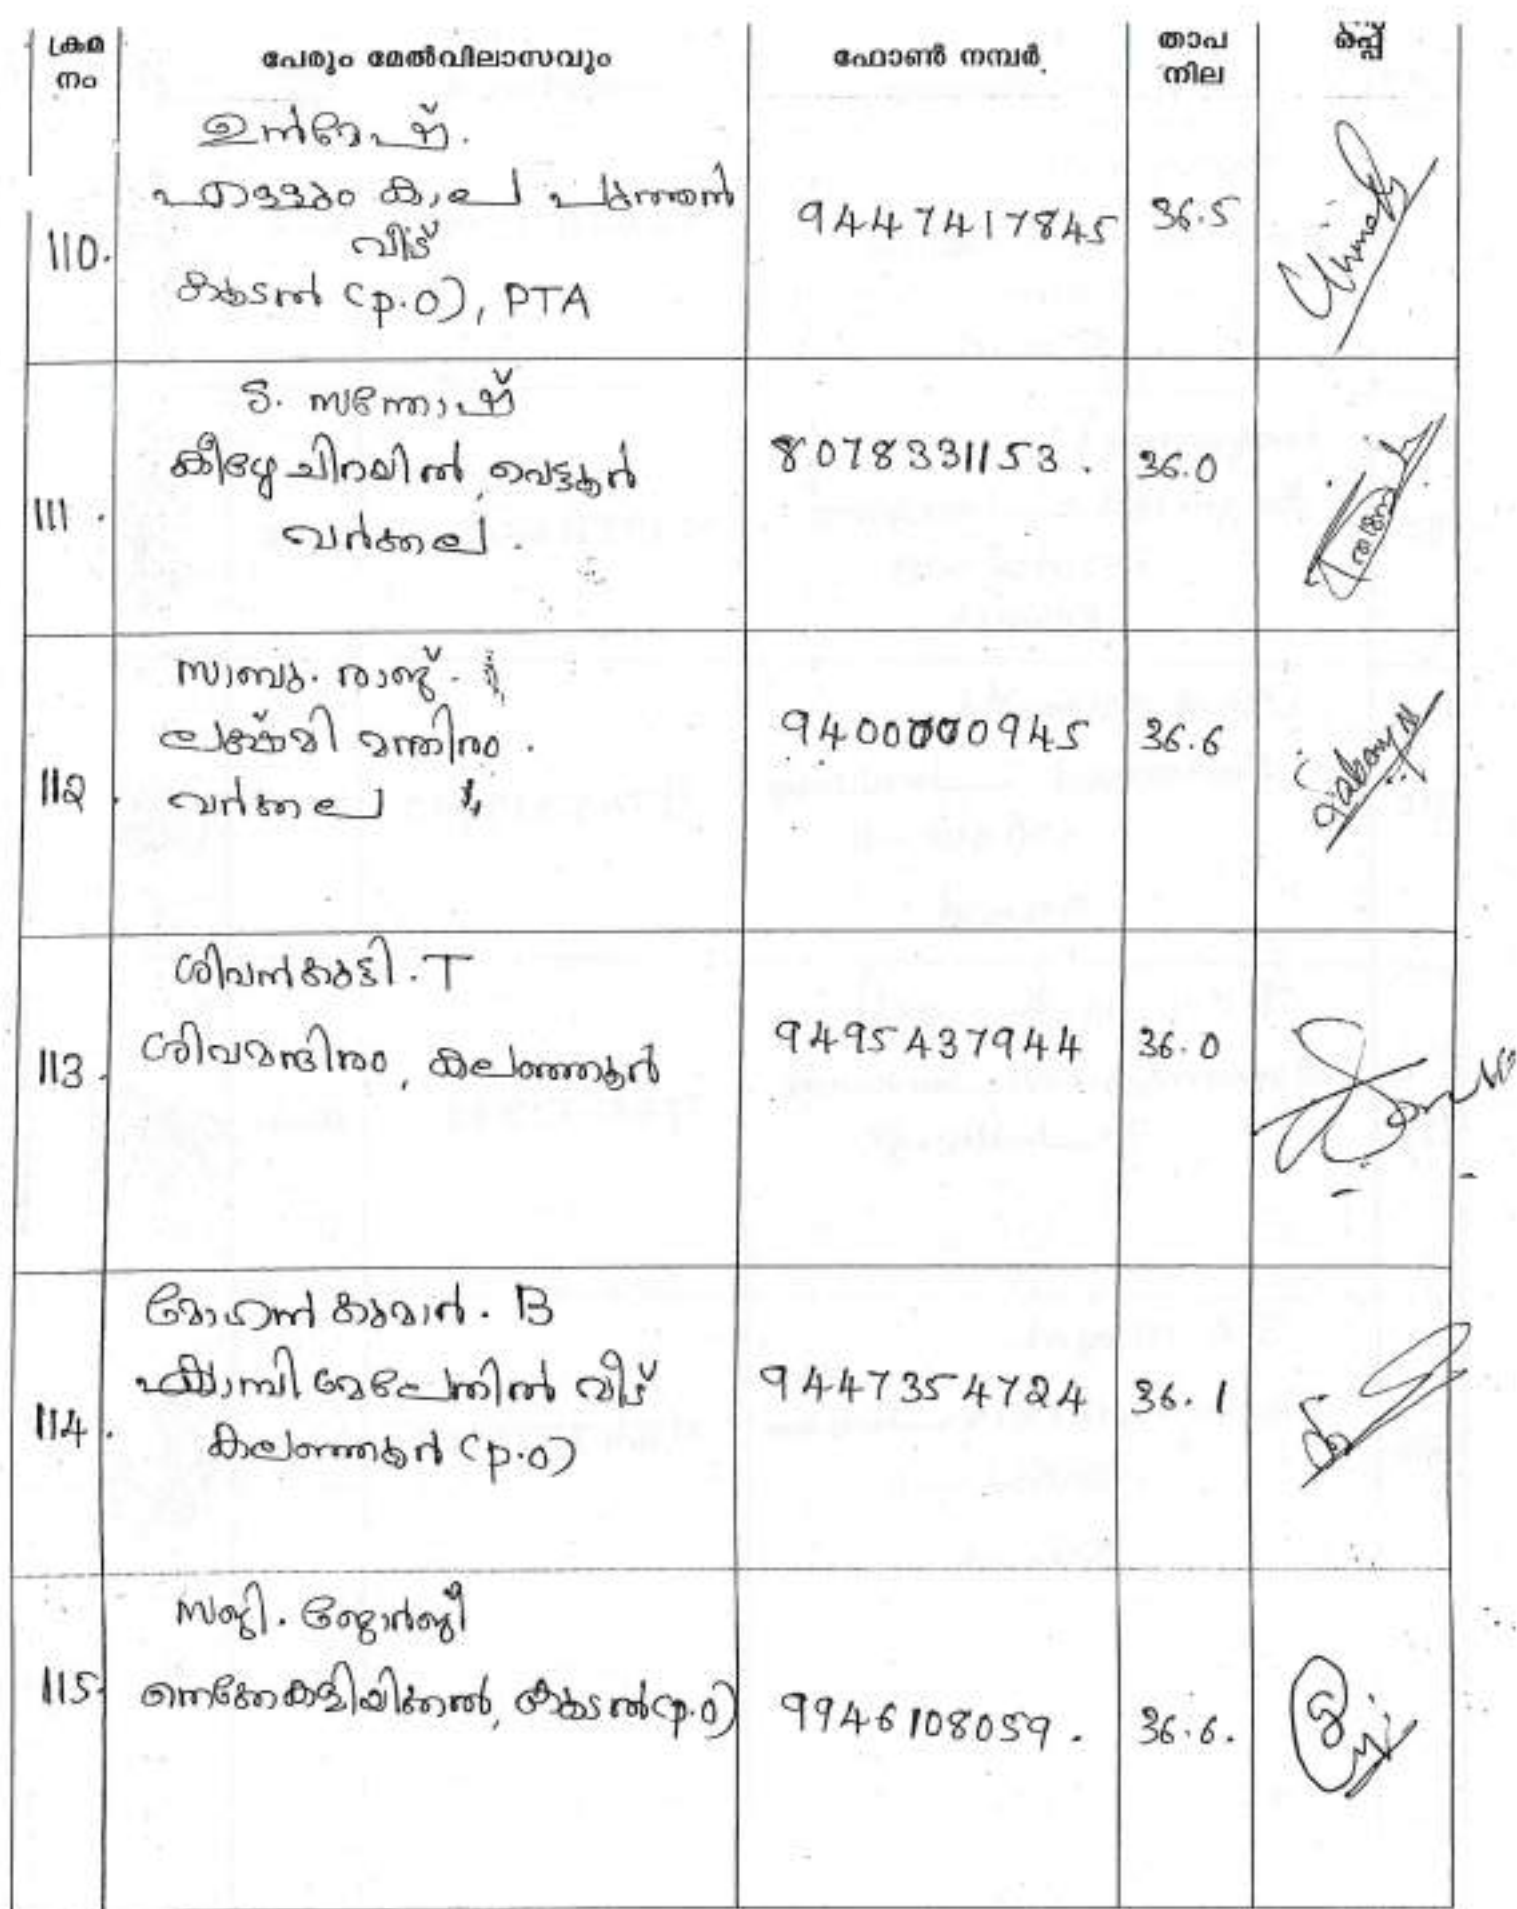 ക്രമ നം പേരും മേൽവിലാസവും ഫോൺ നമ്പർ താപ നില ഒപ്പ്
110. ഉൻമേഷ്.
കാല പുത്തൻ
വീട്
കൂടൽ (p.o), PTA
9447417845 36.5
111. S. സന്തോഷ്
കീഴേചിറയിൽ, വെട്ടൂർ
വർക്കല.
8078331153. 36.0
112. സാബു. രാജ്.
ലക്ഷ്മി മന്ദിരം.
വർക്കല
9400000945 36.6
113. ശിവൻകുട്ടി. T
ശിവമന്ദിരം, കലഞ്ഞൂർ
9495437944 36.0
114. മോഹൻ കുമാർ. B
വീട്
കലഞ്ഞൂർ (p.o)
9447354724 36.1
115. സജി. ജോർജ്ജ്
കൂടൽ (p.o)
9946108059. 36.6.